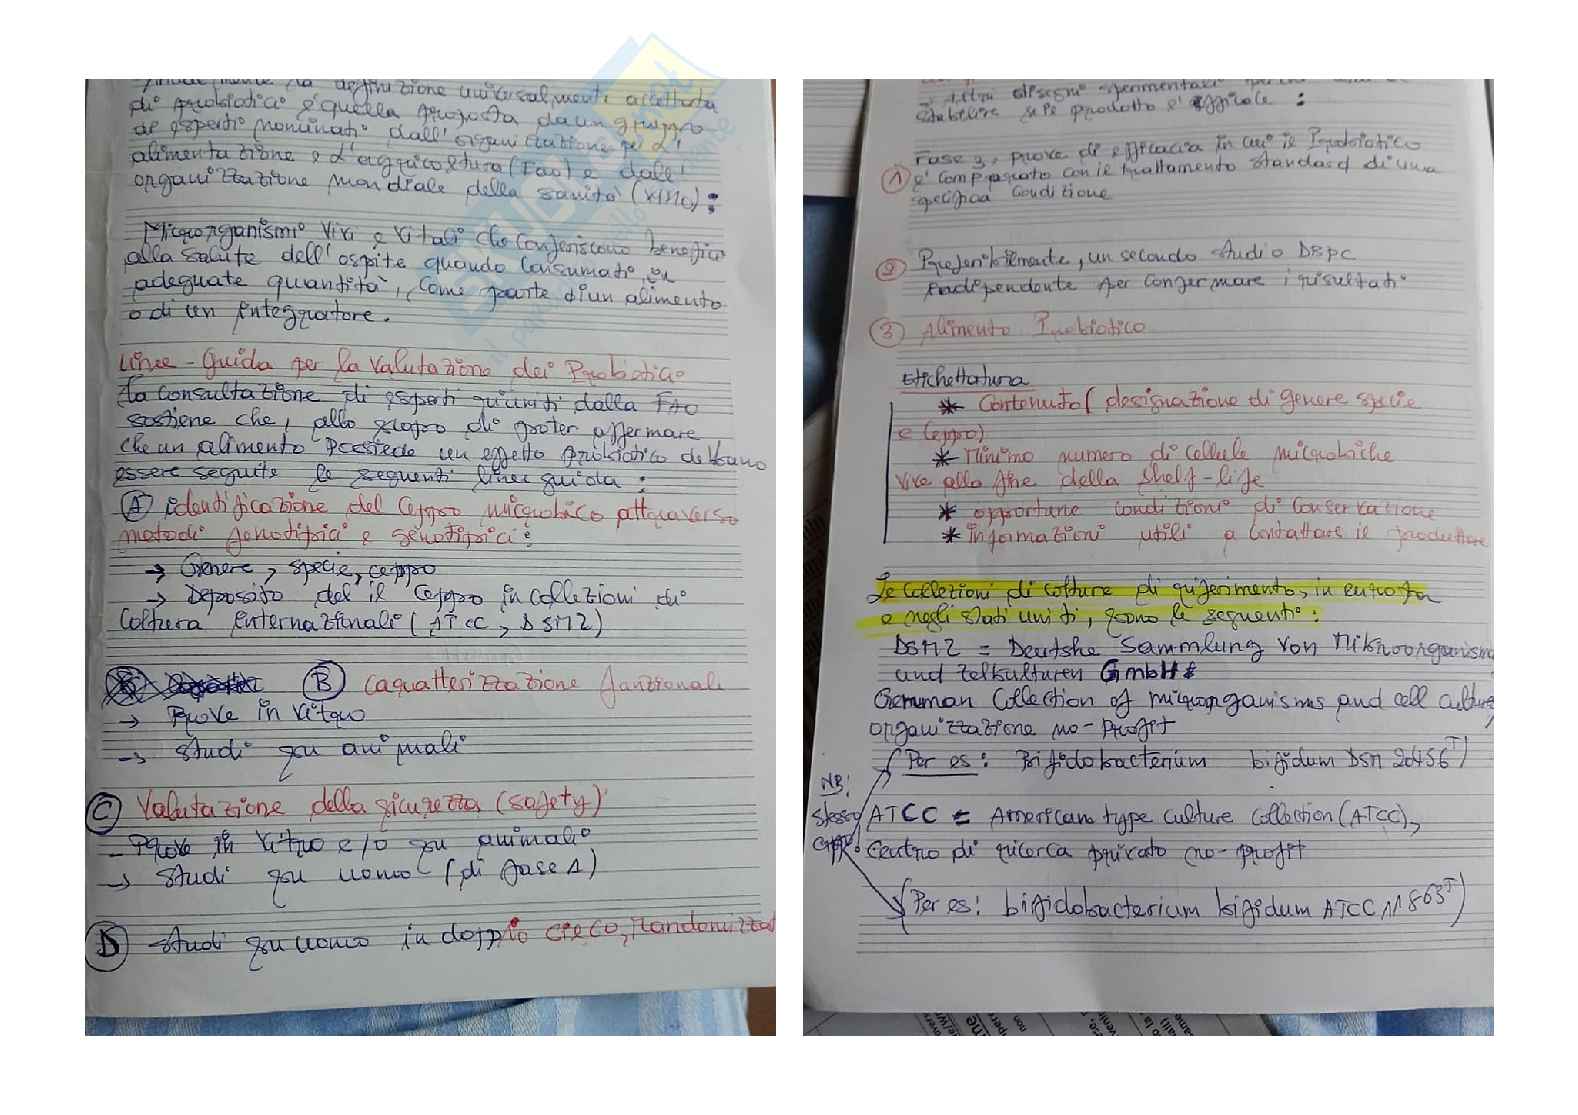 la definizione universalmente accettata
di probiotico è quella proposta da un gruppo
de esperti nominati dall'organizzazione per l'
alimentazione e l'agricoltura (Fao) e dall'
organizzazione mondiale della sanità (WHO) :
Microrganismi vivi e vitali che conferiscono benefici
alla salute dell'ospite quando consumati in
adeguate quantità, come parte d'un alimento
o di un integratore.
Linee-Guida per la valutazione dei Probiotici
La consultazione di esperti riuniti dalla FAO
sostiene che, allo scopo di poter affermare
che un alimento possiede un effetto probiotico debbano
essere seguite le seguenti linee guida :
(A) identificazione del Ceppo microbico attraverso
metodi fenotipici e genotipici:
→ Genere, specie, ceppo
→ Deposito del il Ceppo in collezioni di
Coltura internazionali (ATCC, DSMZ)
(B) Caratterizzazione funzionale
→ Prove in vitro
→ Studi su animali
(C) Valutazione della sicurezza (safety)
- Prove in vitro e/o su animali
→ Studi su uomo (di fase 1)
(D) studi su uomo in doppio cieco, randomizzat
altri disegni sperimentali
stabilire se il prodotto è efficace :
(1) fase 3, prove di efficacia in cui il Probiotico
è comparato con il trattamento standard di una
specifica condizione
(2) Preferibilmente, un secondo studio DBPC
indipendente per confermare i risultati
(3) Alimento Probiotico
Etichettatura
* Contenuto (designazione di genere specie
e ceppo)
* Minimo numero di cellule microbiche
vive alla fine della shelf-life
* opportune condizioni di conservazione
* informazioni utili a contattare il produttore
Le collezioni di colture di riferimento, in europa
e negli stati uniti, sono le seguenti :
DSMZ = Deutshe Sammlung von Mikroorganism
und Zellkulturen GmbH
German Collection of microrganisms and cell culture,
organizzazione no-profit
(Per es: Bifidobacterium bifidum DSM 20456ᵀ)
NB:
stesso
ceppo
ATCC = American type culture collection (ATCC),
centro di ricerca privato no-profit
(Per es: bifidobacterium bifidum ATCC 11863ᵀ)